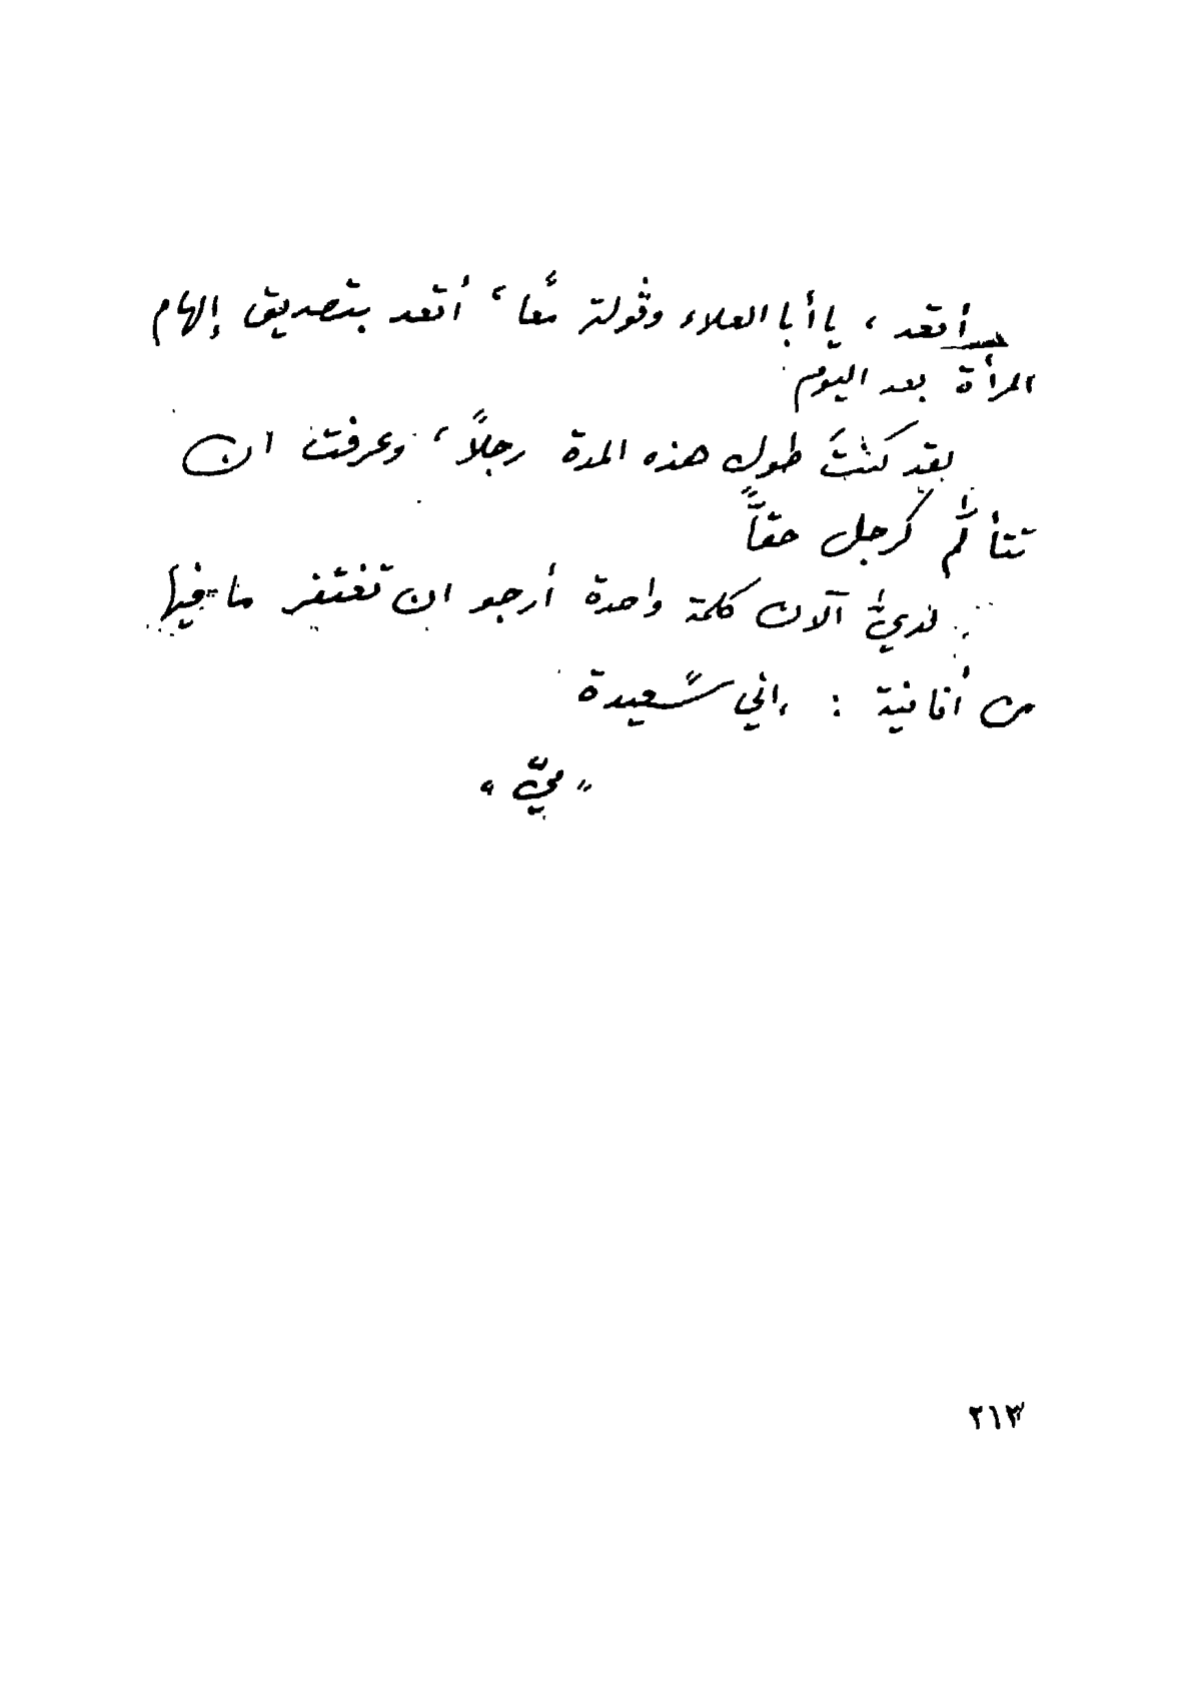 أتعد ، يا أبا العلاء وڤولتر معًا ، أتعد بتصديق إلهام
المرأة بعد اليوم
لقد كنتَ طول هذه المدة رجلاً ، وعرفت ان
تتألَّم كرجل حقًّا
لديَّ الآن كلمة واحدة أرجو ان تغتفر ما فيها
من أنانية : إني سعيدة
" ميّ "
٢١٣